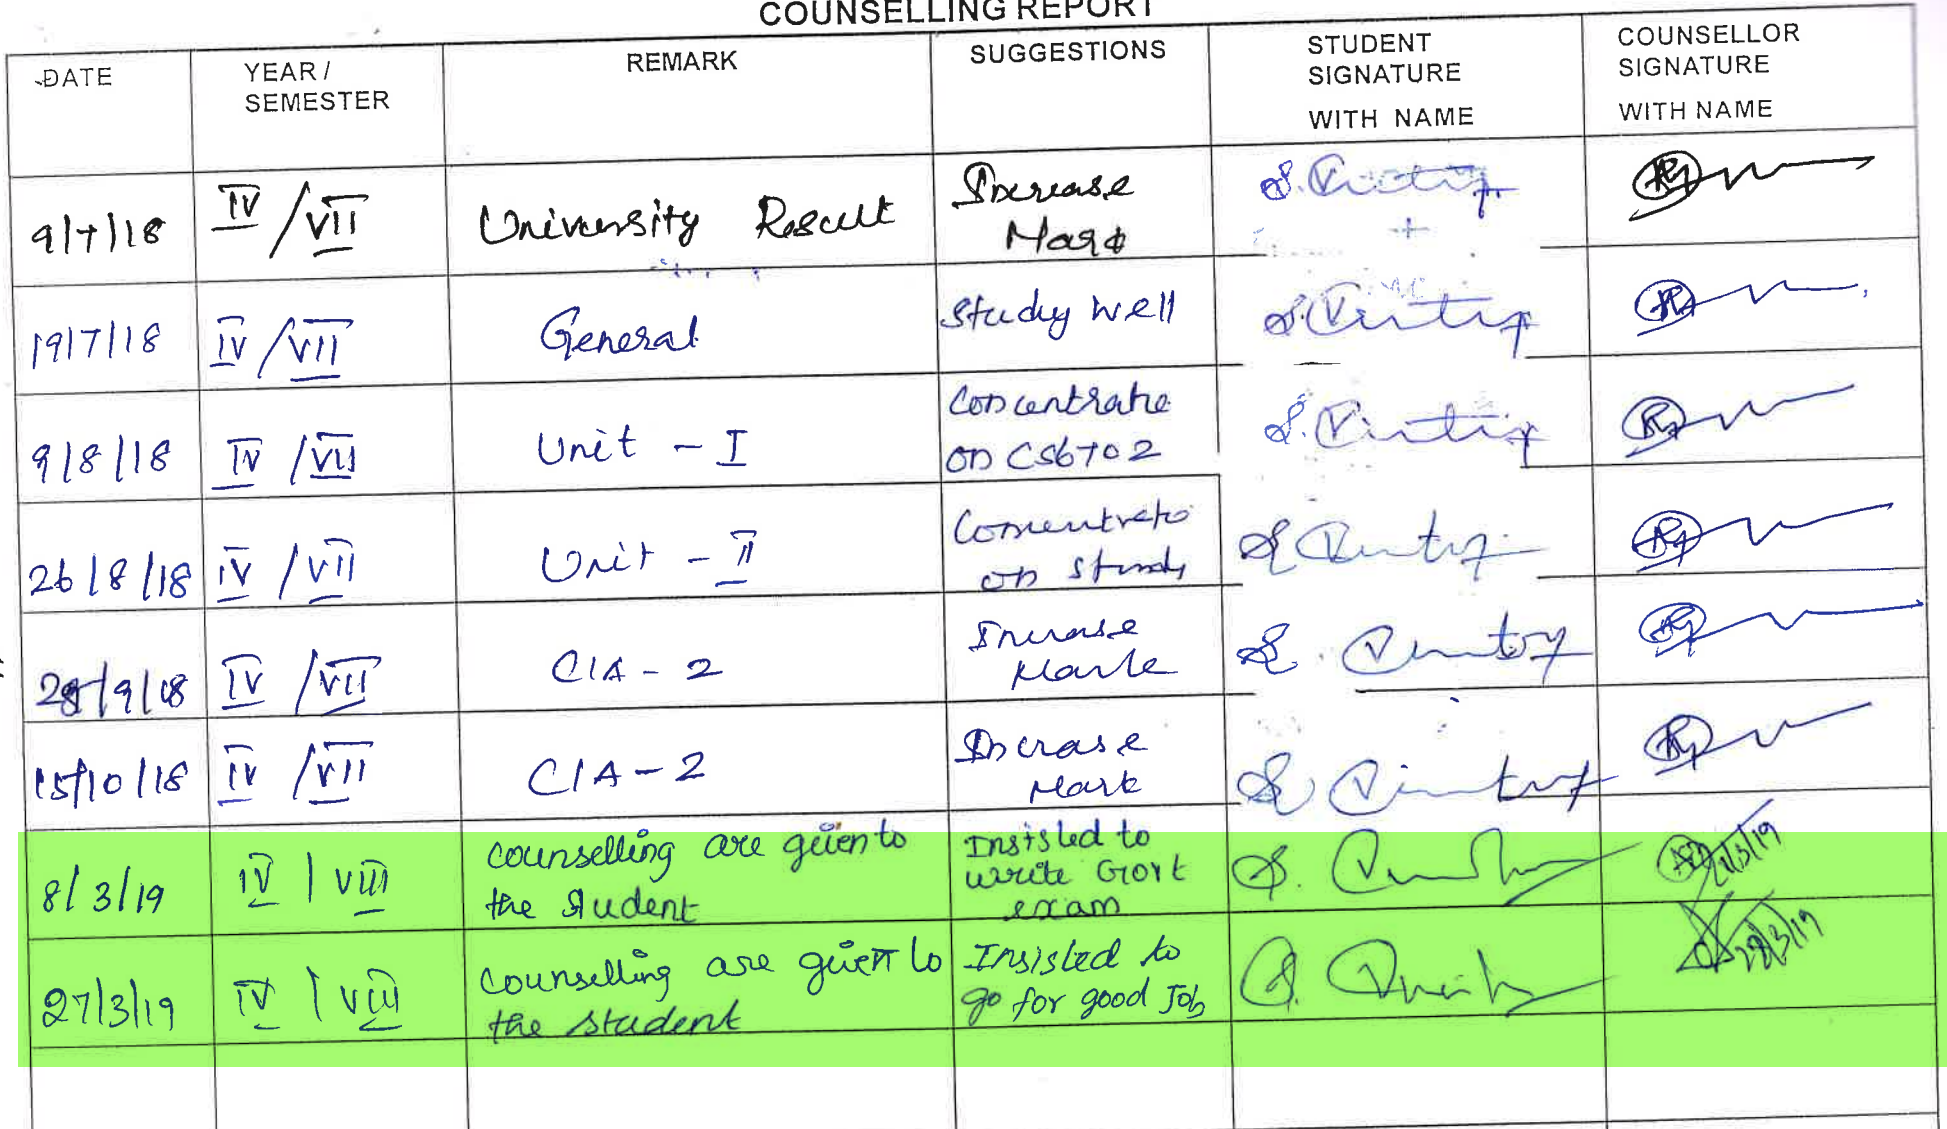 COUNSELLING REPORT
DATE
YEAR / SEMESTER
REMARK
SUGGESTIONS
STUDENT SIGNATURE WITH NAME
COUNSELLOR SIGNATURE WITH NAME
9/7/18 IV / VII University Result Increase Mark
19/7/18 IV / VII General Study well
9/8/18 IV / VII Unit - I Concentrate on CS6702
26/8/18 IV / VII Unit - II Concentrate on Study
28/9/18 IV / VII CIA - 2 Increase Mark
15/10/18 IV / VII CIA - 2 Increase Mark
8/3/19 IV / VIII counselling are given to the student Insisted to write Govt exam
27/3/19 IV / VIII counselling are given to the student Insisted to go for good Job 28/3/19